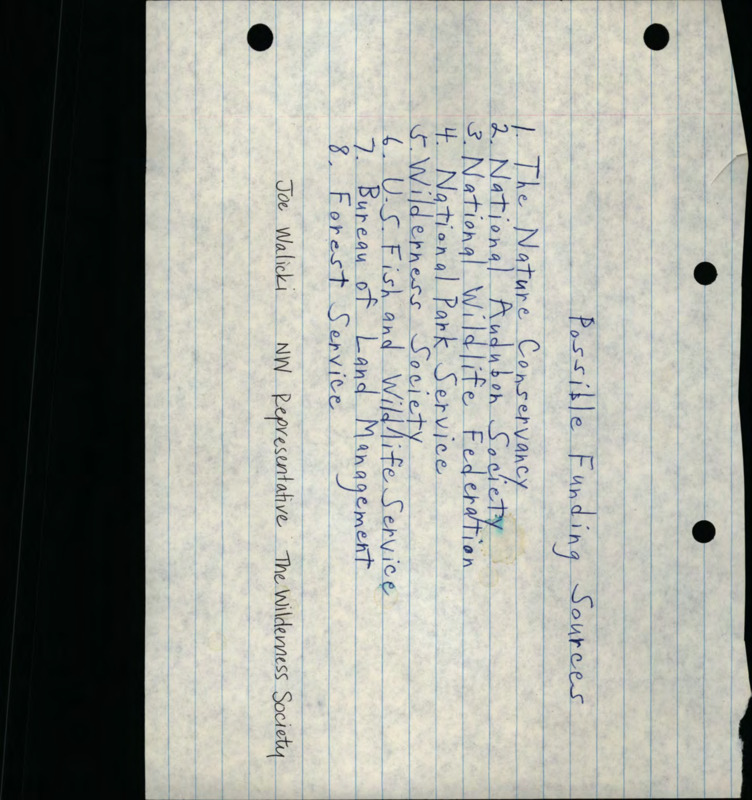 Possible Funding Sources
1. The Nature Conservancy
2. National Audubon Society
3. National Wildlife Federation
4. National Park Service
5. Wilderness Society
6. U.S. Fish and Wildlife Service
7. Bureau of Land Management
8. Forest Service
Joe Walicki NW Representative The Wilderness Society